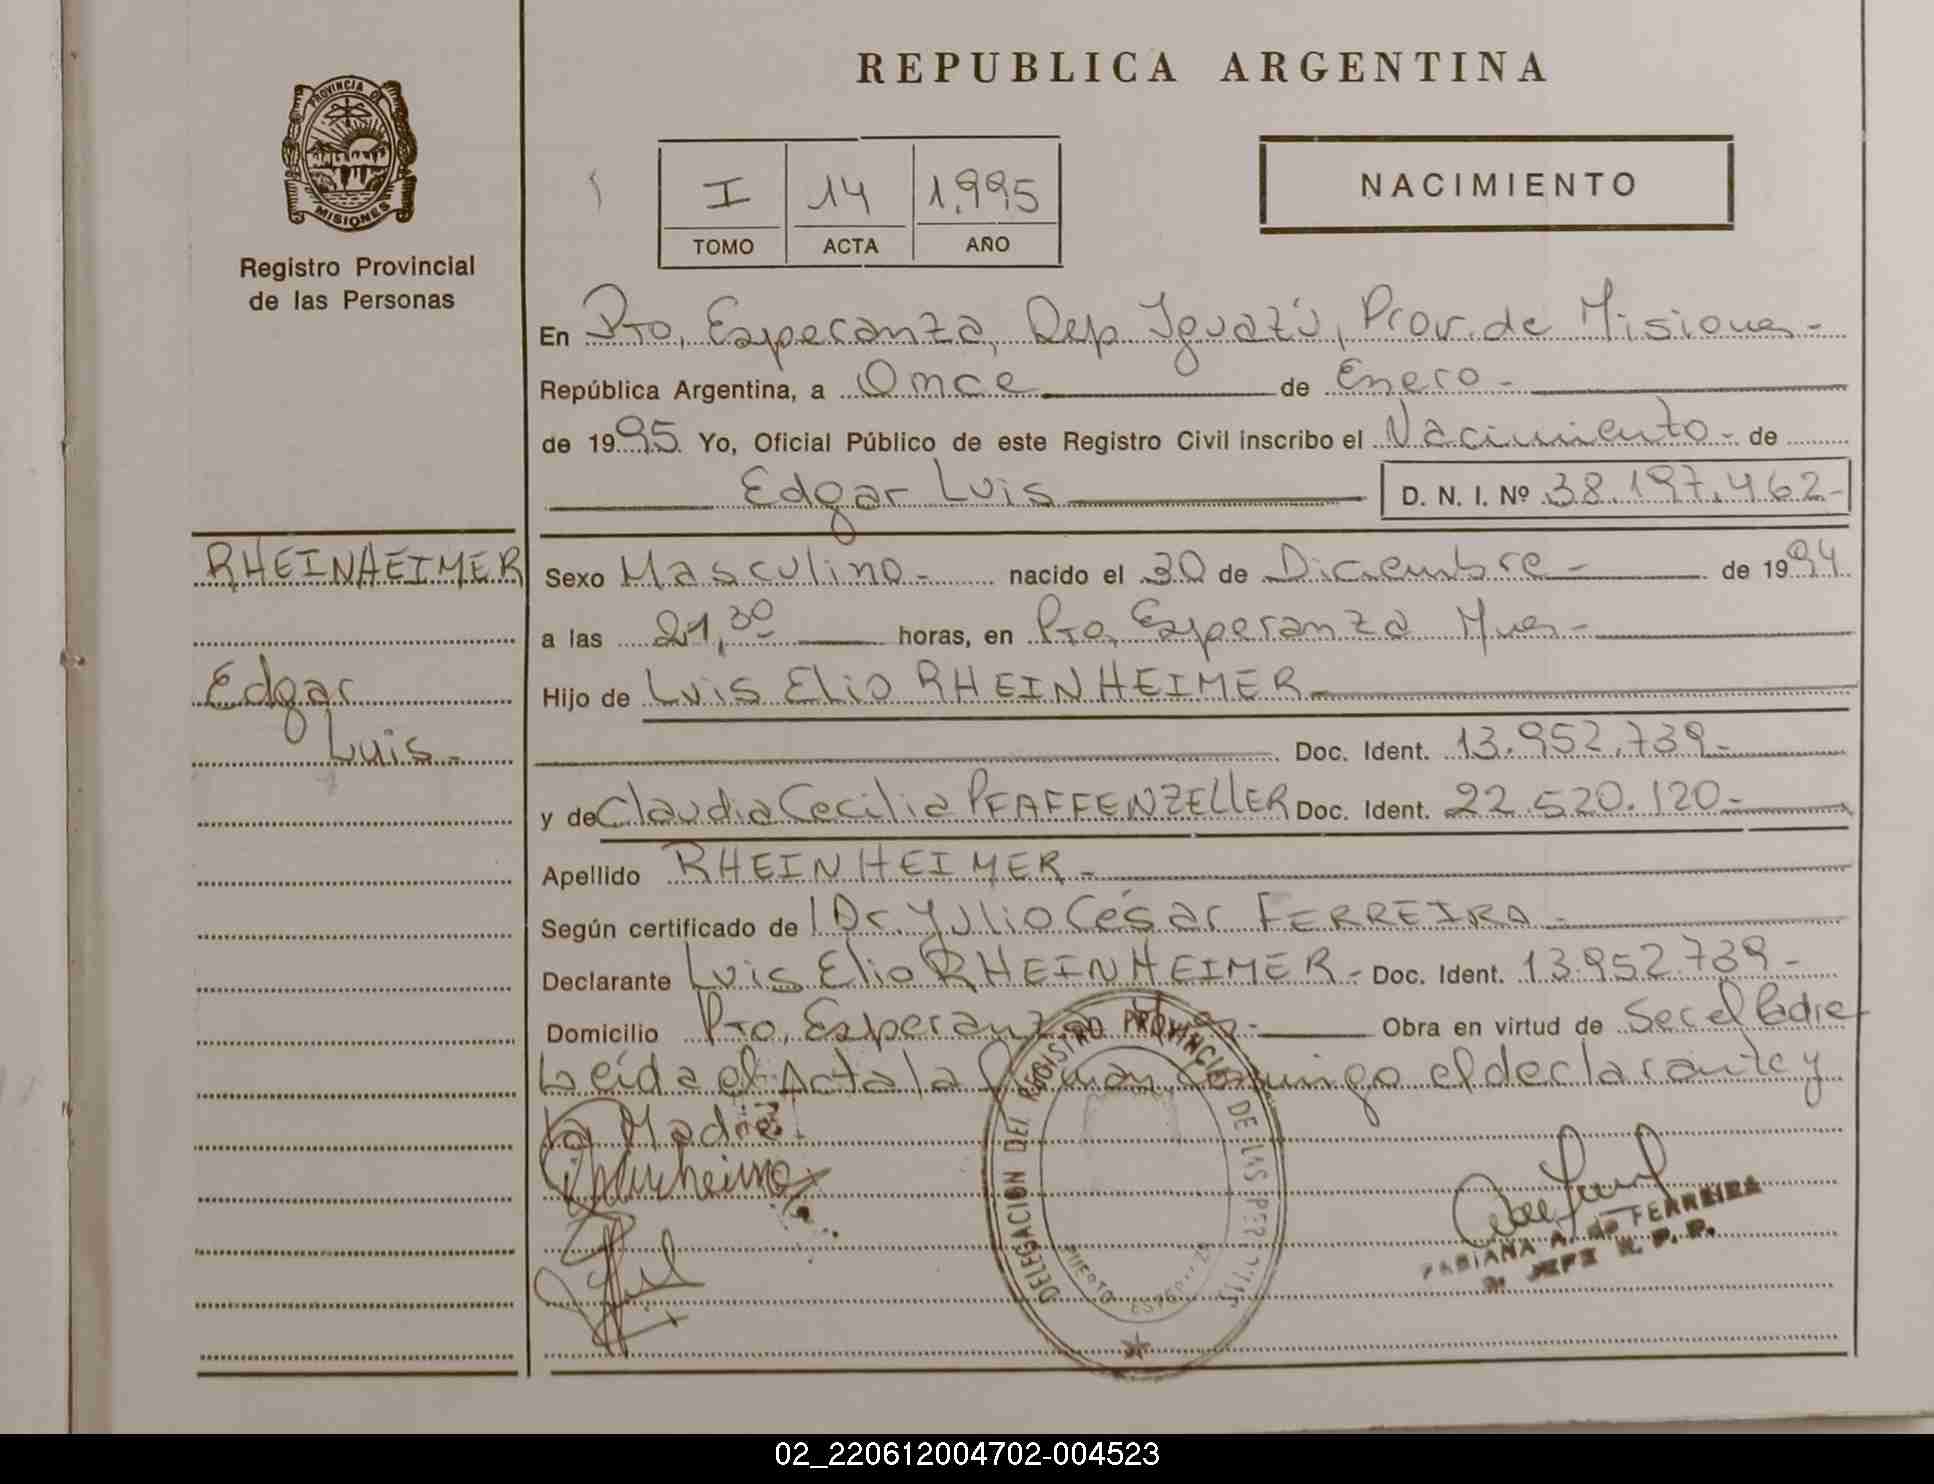 REPUBLICA ARGENTINA
PROVINCIA DE
MISIONES
Registro Provincial
de las Personas
I 14 1.995
TOMO ACTA AÑO
NACIMIENTO
En Pto. Esperanza, Dep. Iguazú, Prov. de Misiones -
República Argentina, a Once de Enero -
de 1995 Yo, Oficial Público de este Registro Civil inscribo el Nacimiento - de
Edgar Luis D. N. I. Nº 38.197.462-
RHEINHEIMER
Edgar
Luis -
Sexo Masculino - nacido el 30 de Diciembre - de 1994
a las 21,30 horas, en Pto. Esperanza Mnes -
Hijo de Luis Elio RHEINHEIMER -
Doc. Ident. 13.952.739 -
y de Claudia Cecilia PFAFFENZELLER Doc. Ident. 22.520.120 -
Apellido RHEINHEIMER -
Según certificado de Dr. Julio César FERREIRA -
Declarante Luis Elio RHEINHEIMER - Doc. Ident. 13.952.739 -
Domicilio Pto. Esperanza Obra en virtud de Ser el Padre
Leída el Acta la Firman Conmigo el declarante y
la Madre.
DELEGACION DEL REGISTRO PROVINCIAL DE LAS PERSONAS
PUERTO ESPERANZA
FABIANA A. de FERREIRA
JEFE R. P. P.
02_220612004702-004523